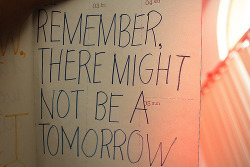 REMEMBER,
THERE MIGHT
NOT BE A
TOMORROW